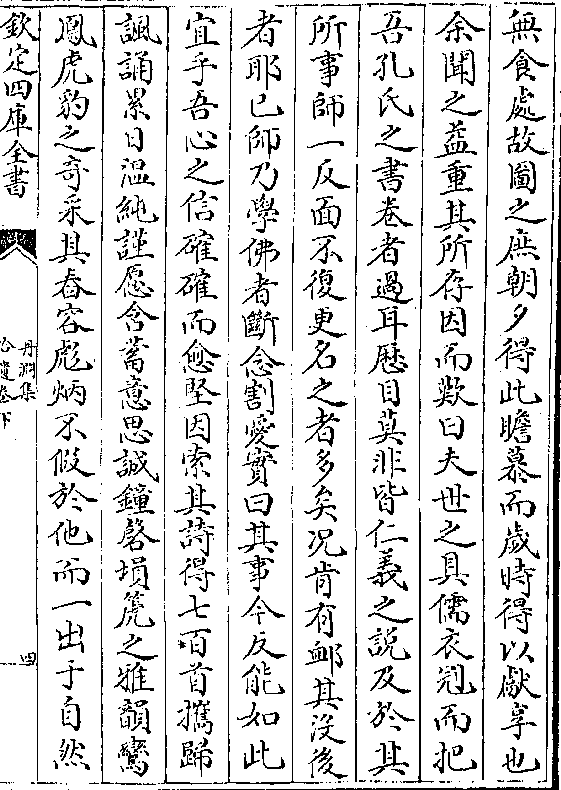 無食處故圖之庶朝夕得此瞻慕而歲時得以獻享也
余聞之益重其所存因而歎曰夫世之具儒衣冠而把
吾孔氏之書卷者過耳歷目莫非皆仁義之說及於其
所事師一反面不復更名之者多矣况肯有䘏其沒後
者耶已師乃學佛者斷念割愛實曰其事今反能如此
宜乎吾心之信確確而愈堅因索其詩得七百首攜歸
諷誦累日溫純謹愿含蓄意思誠鐘磬塤箎之雅韻鸞
鳳虎豹之奇采其舂容彪炳不假於他而一出于自然
欽定四庫全書
丹淵集
拾遺卷下
四